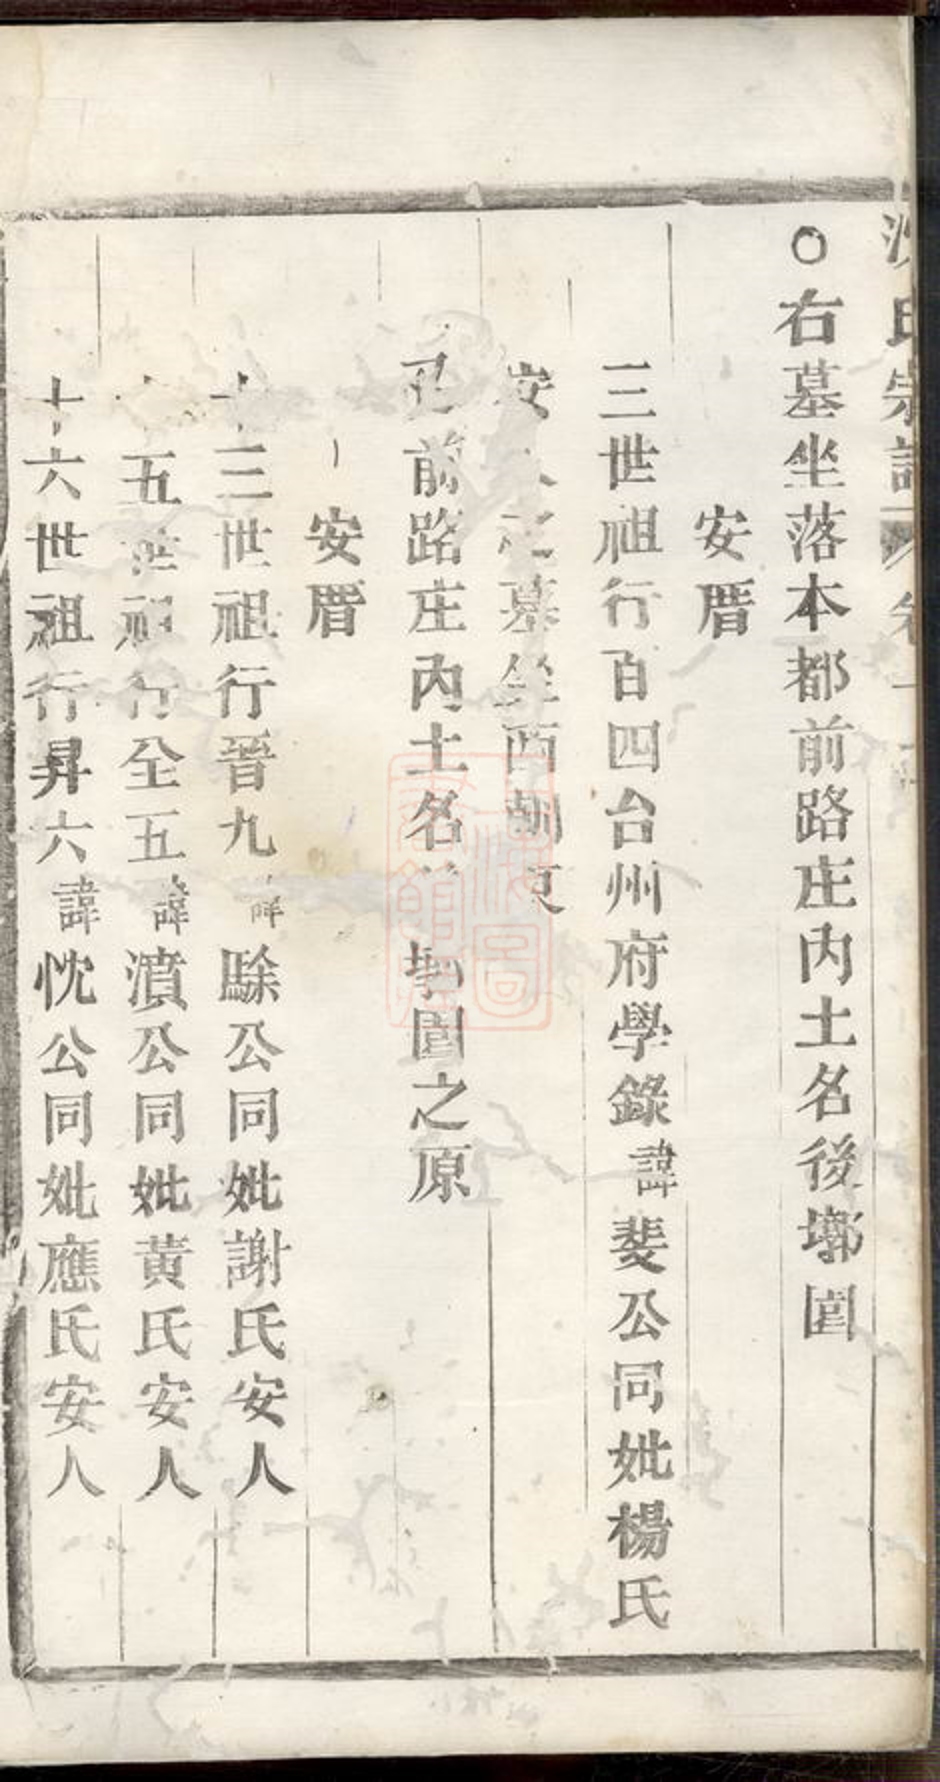 氏宗譜 卷
〇右墓坐落本都前路庄内土名後墎園
安厝
三世祖行百四台州府學錄諱斐公同妣楊氏
安人之墓坐西朝東
前路庄内土名墎園之原
安厝
十三世祖行晉九諱賖公同妣謝氏安人
五世祖行全五諱濆公同妣黄氏安人
十六世祖行昇六諱忱公同妣應氏安人